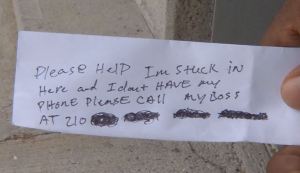 Please Help Im stuck in
Here and I dont HAVE my
PHONE Please CALL My Boss
AT 210